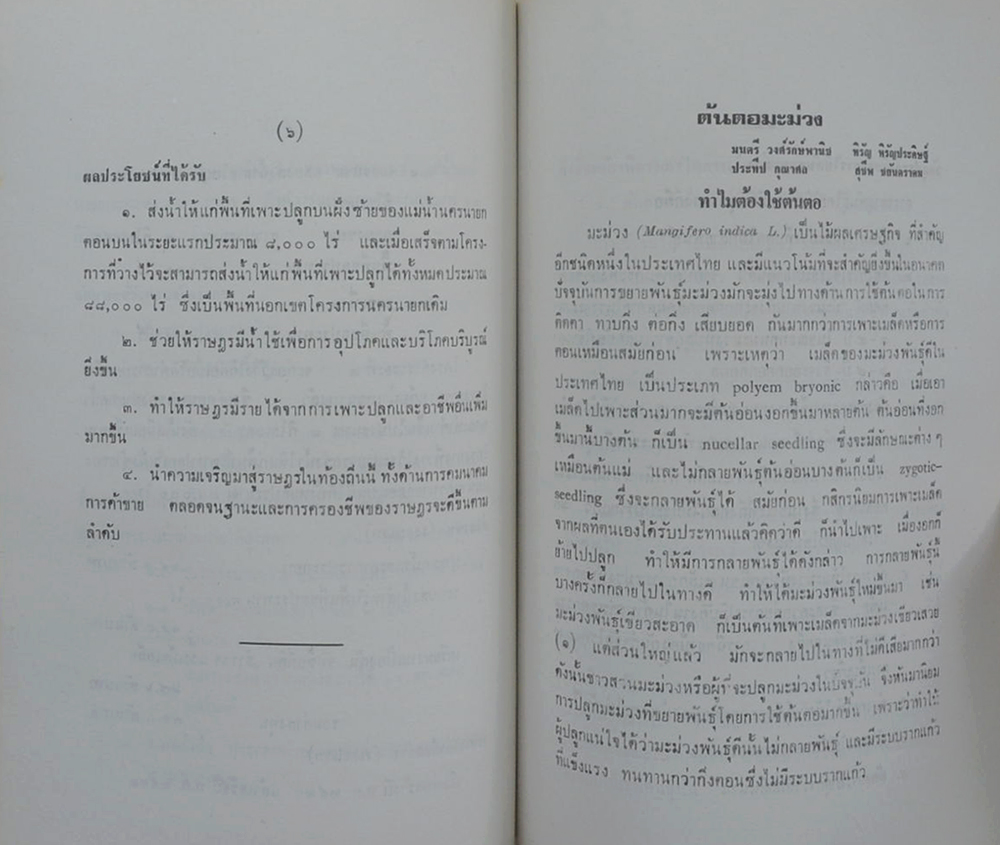 (๖)
ผลประโยชน์ที่ได้รับ
๑. ส่งน้ำให้แก่พื้นที่เพาะปลูกบนฝั่งซ้ายของแม่น้ำนครนายก
ตอนบนในระยะแรกประมาณ ๘,๐๐๐ ไร่ และเมื่อเสร็จตามโครง-
การที่วางไว้จะสามารถส่งน้ำให้แก่พื้นที่เพาะปลูกได้ทั้งหมดประมาณ
๘๘,๐๐๐ ไร่ ซึ่งเป็นพื้นที่นอกเขตโครงการนครนายกเดิม
๒. ช่วยให้ราษฎรมีน้ำใช้เพื่อการอุปโภคและบริโภคบริบูรณ์
ยิ่งขึ้น
๓. ทำให้ราษฎรมีรายได้จากการเพาะปลูกและอาชีพอื่นเพิ่ม
มากขึ้น
๔. นำความเจริญมาสู่ราษฎรในท้องถิ่นนี้ ทั้งด้านการคมนาคม
การค้าขาย ตลอดจนฐานะและการครองชีพของราษฎรจะดีขึ้นตาม
ลำดับ
ต้นตอมะม่วง
มนตรี วงศ์รักษ์พานิช พิรัญ พิรัญประดิษฐ์
ประทีป กุณาศล สุชีพ
ทำไมต้องใช้ต้นตอ
มะม่วง (Mangifero indica L.) เป็นไม้ผลเศรษฐกิจ ที่สำคัญ
อีกชนิดหนึ่งในประเทศไทย และมีแนวโน้มที่จะสำคัญยิ่งขึ้นในอนาคต
ปัจจุบันการขยายพันธุ์มะม่วงมักจะมุ่งไปทางด้านการใช้ต้นตอในการ
ติดตา ทาบกิ่ง ต่อกิ่ง เสียบยอด กันมากกว่าการเพาะเมล็ดหรือการ
ตอนเหมือนสมัยก่อน เพราะเหตุว่า เมล็ดของมะม่วงพันธุ์ดีใน
ประเทศไทย เป็นประเภท polyem bryonic กล่าวคือ เมื่อเอา
เมล็ดไปเพาะส่วนมากจะมีต้นอ่อนงอกขึ้นมาหลายต้น ต้นอ่อนที่งอก
ขึ้นมานี้บางต้น ก็เป็น nucellar seedling ซึ่งจะมีลักษณะต่าง ๆ
เหมือนต้นแม่ และไม่กลายพันธุ์ต้นอ่อนบางต้นก็เป็น zygotic-
seedling ซึ่งจะกลายพันธุ์ได้ สมัยก่อน กสิกรนิยมการเพาะเมล็ด
จากผลที่ตนเองได้รับประทานแล้วคิดว่าดี ก็นำไปเพาะ เมื่องอกก็
ย้ายไปปลูก ทำให้มีการกลายพันธุ์ได้ดังกล่าว การกลายพันธุ์นี้
บางครั้งก็กลายไปในทางดี ทำให้ได้มะม่วงพันธุ์ใหม่ขึ้นมา เช่น
มะม่วงพันธุ์เขียวสะอาด ก็เป็นต้นที่เพาะเมล็ดจากมะม่วงเขียวเสวย
(๑) แต่ส่วนใหญ่แล้ว มักจะกลายไปในทางที่ไม่ดีเสียมากกว่า
ดังนั้นชาวสวนมะม่วงหรือผู้ที่จะปลูกมะม่วงในปัจจุบัน จึงหันมานิยม
การปลูกมะม่วงที่ขยายพันธุ์โดยการใช้ต้นตอมากขึ้น เพราะว่าทำให้
ผู้ปลูกแน่ใจได้ว่ามะม่วงพันธุ์ดีนั้นไม่กลายพันธุ์ และมีระบบรากแก้ว
ที่แข็งแรง ทนทานกว่ากิ่งตอนซึ่งไม่มีระบบรากแก้ว